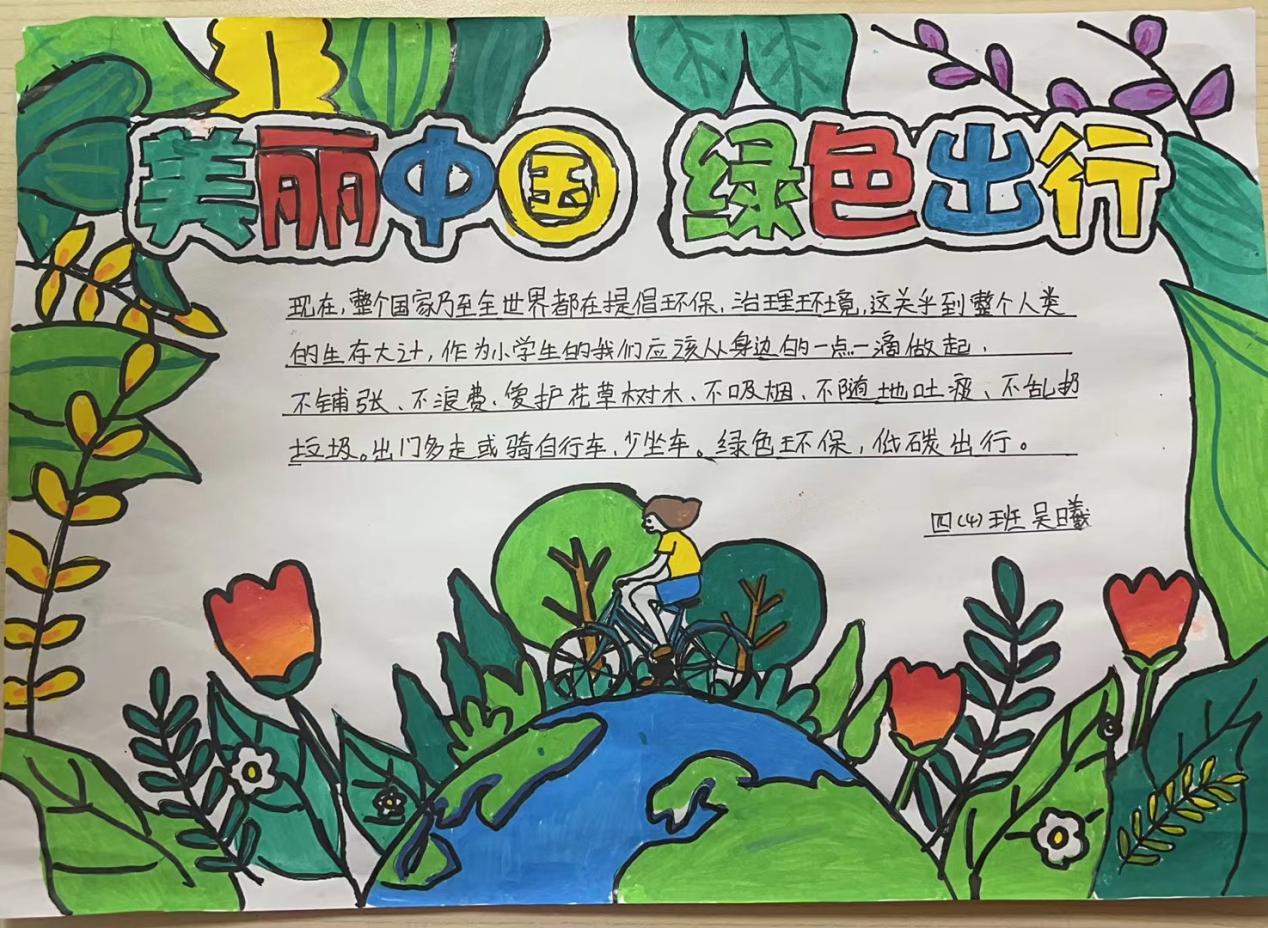 美丽中国 绿色出行
现在,整个国家乃至全世界都在提倡环保,治理环境,这关乎到整个人类
的生存大计,作为小学生的我们应该从身边的一点一滴做起.
不铺张、不浪费、爱护花草树木、不吸烟、不随地吐痰、不乱扔
垃圾。出门多走或骑自行车、少坐车。绿色环保,低碳出行。
四(4)班 吴曦